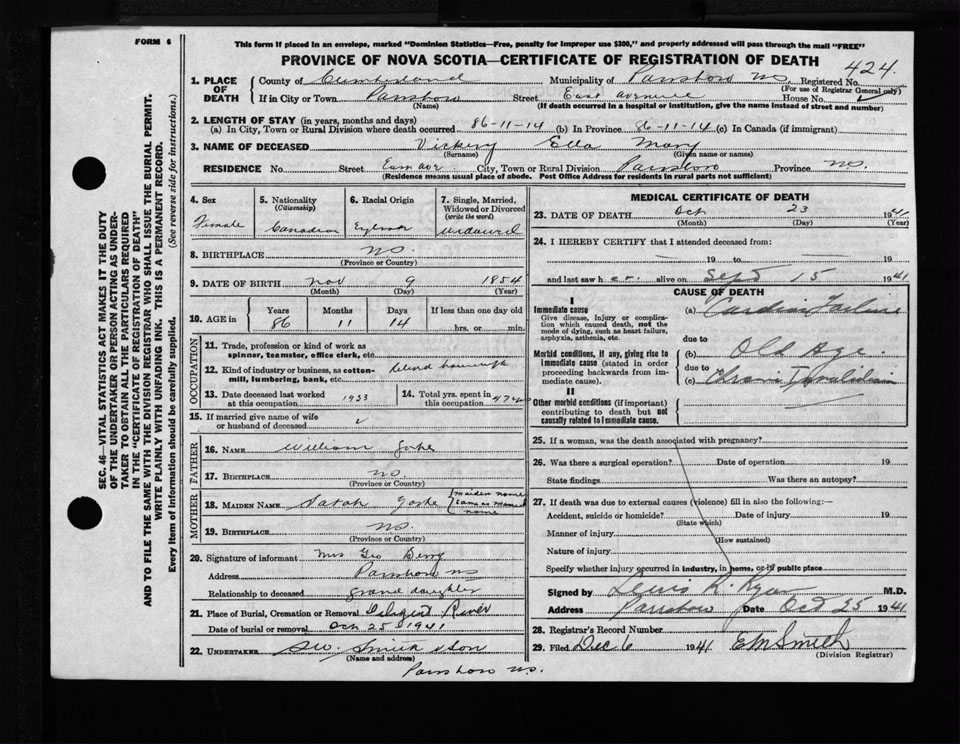 FORM 6
This form if placed in an envelope, marked "Dominion Statistics—Free, penalty for improper use $300," and properly addressed will pass through the mail "FREE"
PROVINCE OF NOVA SCOTIA—CERTIFICATE OF REGISTRATION OF DEATH
424.
1. PLACE OF DEATH
County of Cumberland Municipality of Parrsboro N.S. Registered No.
(For use of Registrar General only)
If in City or Town Parrsboro Street East avenue House No.
(Name) (If death occurred in a hospital or institution, give the name instead of street and number)
2. LENGTH OF STAY (in years, months and days)
(a) In City, Town or Rural Division where death occurred 86-11-14 (b) In Province 86-11-14 (c) In Canada (if immigrant)
3. NAME OF DECEASED Vickery Ella Mary
(Surname) (Given name or names)
RESIDENCE No. Street East Ave City, Town or Rural Division Parrsboro Province N.S.
(Residence means usual place of abode. Post Office Address for residents in rural parts not sufficient)
4. Sex
Female
5. Nationality
(Citizenship)
Canadian
6. Racial Origin
English
7. Single, Married, Widowed or Divorced
(write the word)
widowed
8. BIRTHPLACE N.S.
(Province or Country)
9. DATE OF BIRTH Nov 9 1854
(Month) (Day) (Year)
10. AGE in
Years Months Days If less than one day old
86 11 14 hrs. or min.
OCCUPATION
11. Trade, profession or kind of work as spinner, teamster, office clerk, etc.
12. Kind of industry or business, as cotton-mill, lumbering, bank, etc.
13. Date deceased last worked at this occupation 1933
14. Total yrs. spent in this occupation 47
15. If married give name of wife or husband of deceased
FATHER
16. NAME William Yorke
17. BIRTHPLACE N.S.
(Province or Country)
MOTHER
18. MAIDEN NAME Sarah Yorke (maiden name same as married name
19. BIRTHPLACE N.S.
(Province or Country)
20. Signature of informant Mrs Geo Berry
Address Parrsboro N.S
Relationship to deceased grand daughter
21. Place of Burial, Cremation or Removal Diligent River
Date of burial or removal Oct 25 1941
22. UNDERTAKER Smith & Son
(Name and address)
Parrsboro N.S.
MEDICAL CERTIFICATE OF DEATH
23. DATE OF DEATH Oct 23 1941
(Month) (Day) (Year)
24. I HEREBY CERTIFY that I attended deceased from:
— 19 to — 19
and last saw her alive on Sept 15 1941
CAUSE OF DEATH
I
Immediate cause
Give disease, injury or complication which caused death, not the mode of dying, such as heart failure, asphyxia, asthenia, etc.
(a) Cardiac Failure
due to
Morbid conditions, if any, giving rise to immediate cause (stated in order proceeding backwards from immediate cause).
(b) Old Age.
due to
(c)
II
Other morbid conditions (if important) contributing to death but not causally related to immediate cause.
25. If a woman, was the death associated with pregnancy?
26. Was there a surgical operation? Date of operation
State findings Was there an autopsy?
27. If death was due to external causes (violence) fill in also the following:—
Accident, suicide or homicide? Date of injury 19
(State which)
Manner of injury
(How sustained)
Nature of injury
Specify whether injury occurred in industry, in home, or in public place
Signed by M.D.
Address Parrsboro Date Oct 25 1941
28. Registrar's Record Number
29. Filed Dec 6 1941 E M Smith
(Division Registrar)
SEC. 46—VITAL STATISTICS ACT MAKES IT THE DUTY OF THE UNDERTAKER OR PERSON ACTING AS UNDERTAKER TO OBTAIN ALL THE PARTICULARS REQUIRED IN THE "CERTIFICATE OF REGISTRATION OF DEATH" AND TO FILE THE SAME WITH THE DIVISION REGISTRAR WHO SHALL ISSUE THE BURIAL PERMIT.
WRITE PLAINLY WITH UNFADING INK. THIS IS A PERMANENT RECORD.
Every item of information should be carefully supplied. (See reverse side for instructions.)